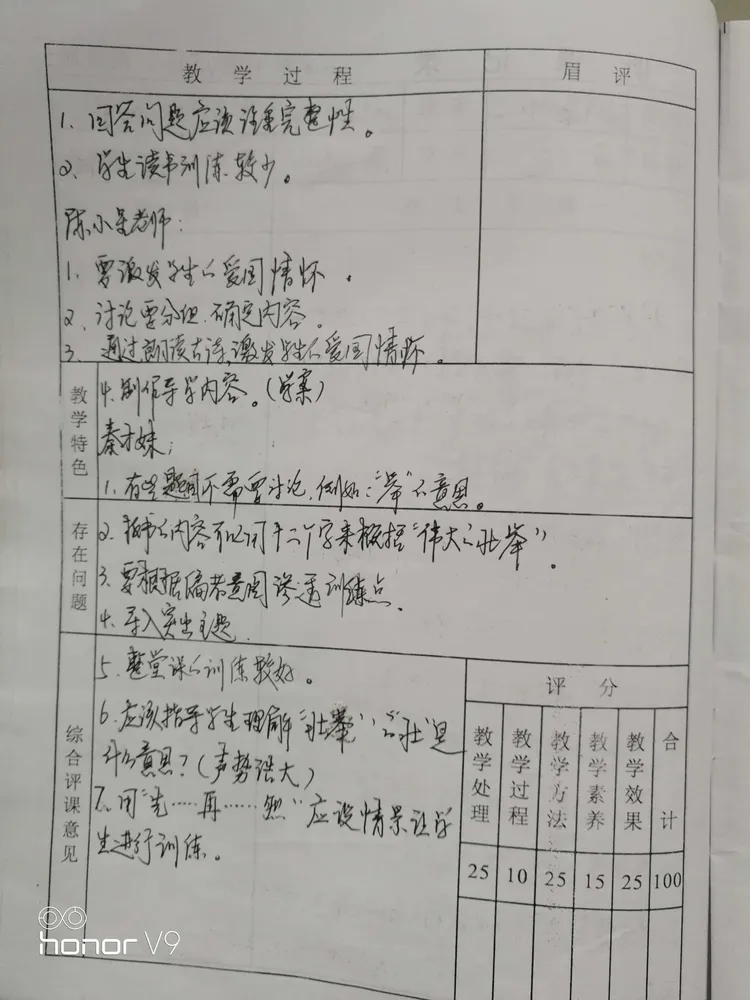 教学过程
眉评
1、回答问题应该注重完整性。
2、学生读书训练较少。
老师：
1、要激发学生的爱国情怀。
2、讨论要分组、确定内容。
3、通过朗读古诗,激发学生的爱国情怀。
教学特色
4、制作导学内容。(学案)
秦才妹：
1、有些题目不需要讨论,例如："举"的意思。
存在问题
2、的内容可以用十二个字来概括"伟大的壮举"。
3、要根据编者意图渗透训练点。
4、导入突出主题。
综合评课意见
5、整堂课的训练较好。
6、应该指导学生理解"壮举"的"壮"是
什么意思?(声势强大)
7、用"先……再……然"应设情景让学
生进行训练。
评分
教学处理
教学过程
教学方法
教学素养
教学效果
合计
25 10 25 15 25 100
honor V9